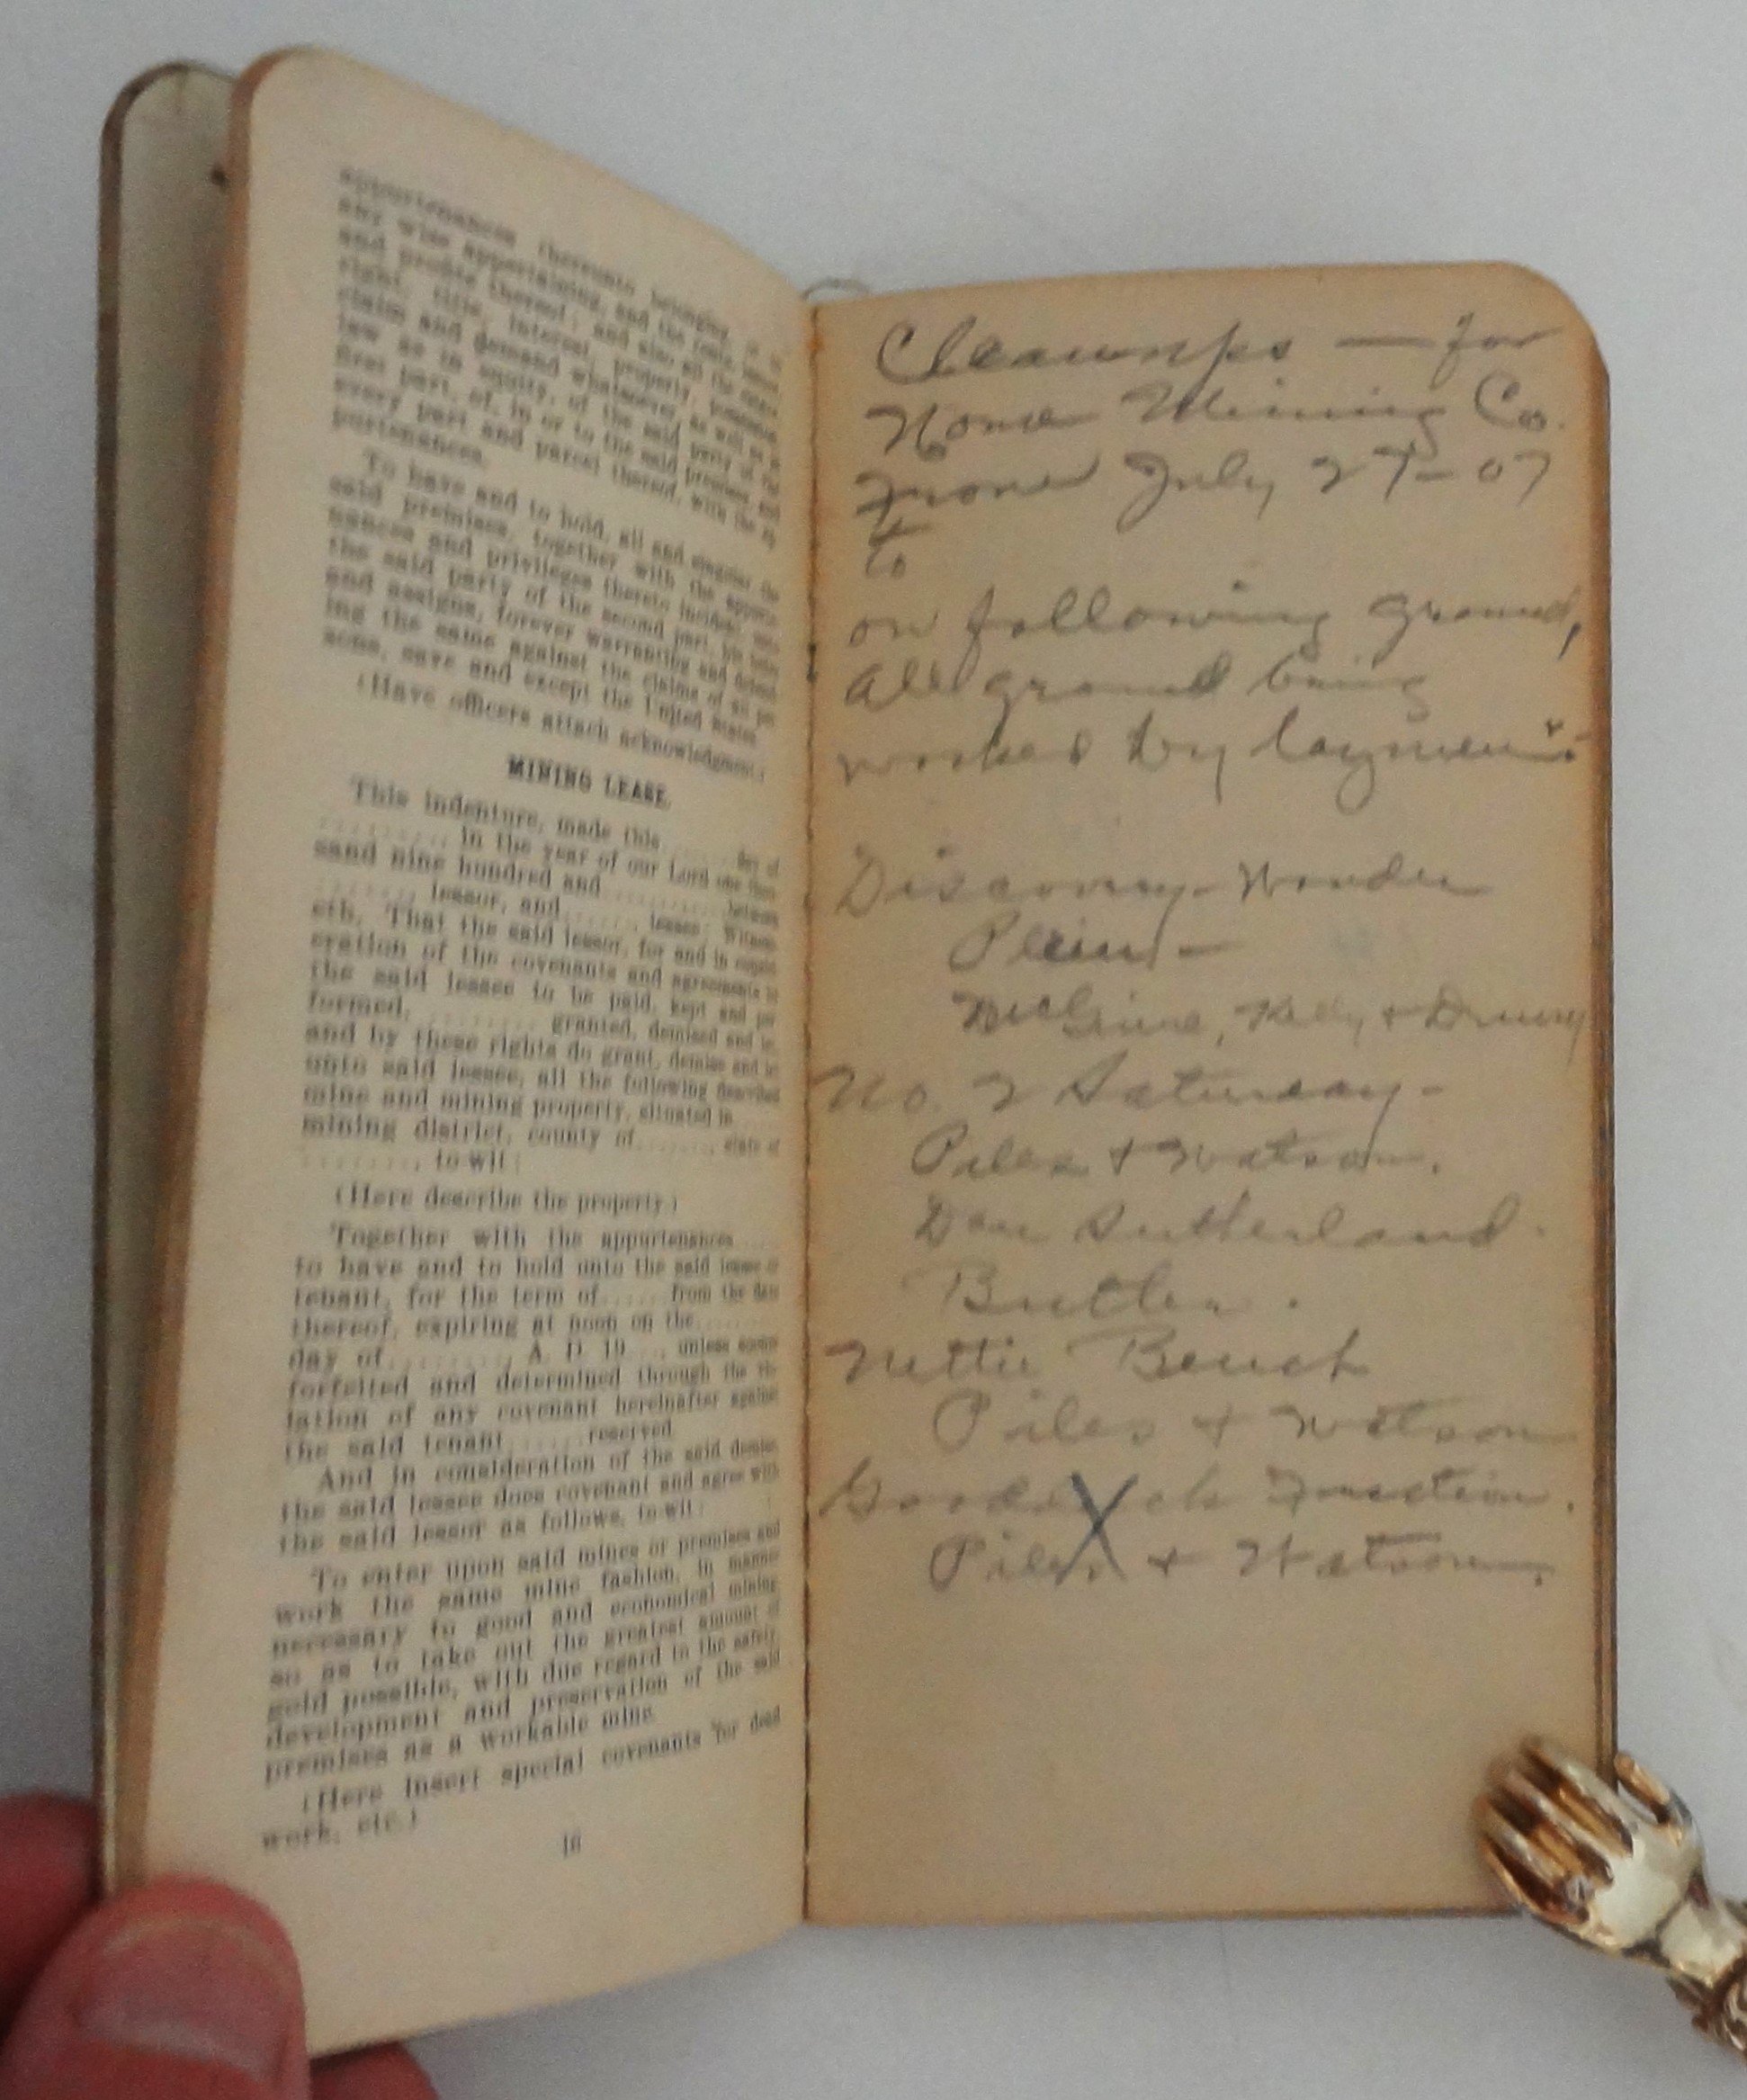 appurtenances thereunto belonging, or in
any wise appertaining, and the rents, issues
and profits thereof; and also all the estate,
right, title, interest, property, possession,
claim and demand whatsoever, as well in
law as in equity, of the said party of the
first part, of, in or to the said premises, and
every part and parcel thereof, with the ap-
purtenances.
To have and to hold, all and singular the
said premises, together with the appurte-
nances and privileges thereto incident, unto
the said party of the second part, his heirs
and assigns, forever warranting and defend-
ing the same against the claims of all per-
sons, save and except the United States.
(Have officers attach acknowledgment.)
MINING LEASE.
This indenture, made this ........ day of
.......... in the year of our Lord one thou-
sand nine hundred and .......... between
.......... lessor, and ........, lessee: Witness-
eth, That the said lessor, for and in consid-
eration of the covenants and agreements by
the said lessee to be paid, kept and per-
formed, .......... granted, demised and let,
and by these rights do grant, demise and let
unto said lessee, all the following described
mine and mining property, situated in
mining district, county of ........, state of
.........., to wit:
(Here describe the property.)
Together with the appurtenances
to have and to hold unto the said lessee or
tenant, for the term of ...... from the date
thereof, expiring at noon on the ........
day of .........., A. D. 19..., unless sooner
forfeited and determined through the vio-
lation of any covenant hereinafter against
the said tenant ...... reserved.
And in consideration of the said demise
the said lessee does covenant and agree with
the said lessor as follows, to wit:
To enter upon said mines or premises and
work the same mine fashion, in manner
necessary to good and economical mining
so as to take out the greatest amount of
gold possible, with due regard to the safety,
development and preservation of the said
premises as a workable mine.
(Here insert special covenants for dead
work, etc.)
16
Cleanups — for
Nome Mining Co.
From July 27-07
to
on following ground,
all ground being
worked by laymen:
Discovery - Wonder
Kelly &
No. 2 Saturday -
Piles & Watson.
Dan Sutherland.
Butler.
Nettie Bench
Piles & Watson
Fraction.
Piles & Watson.